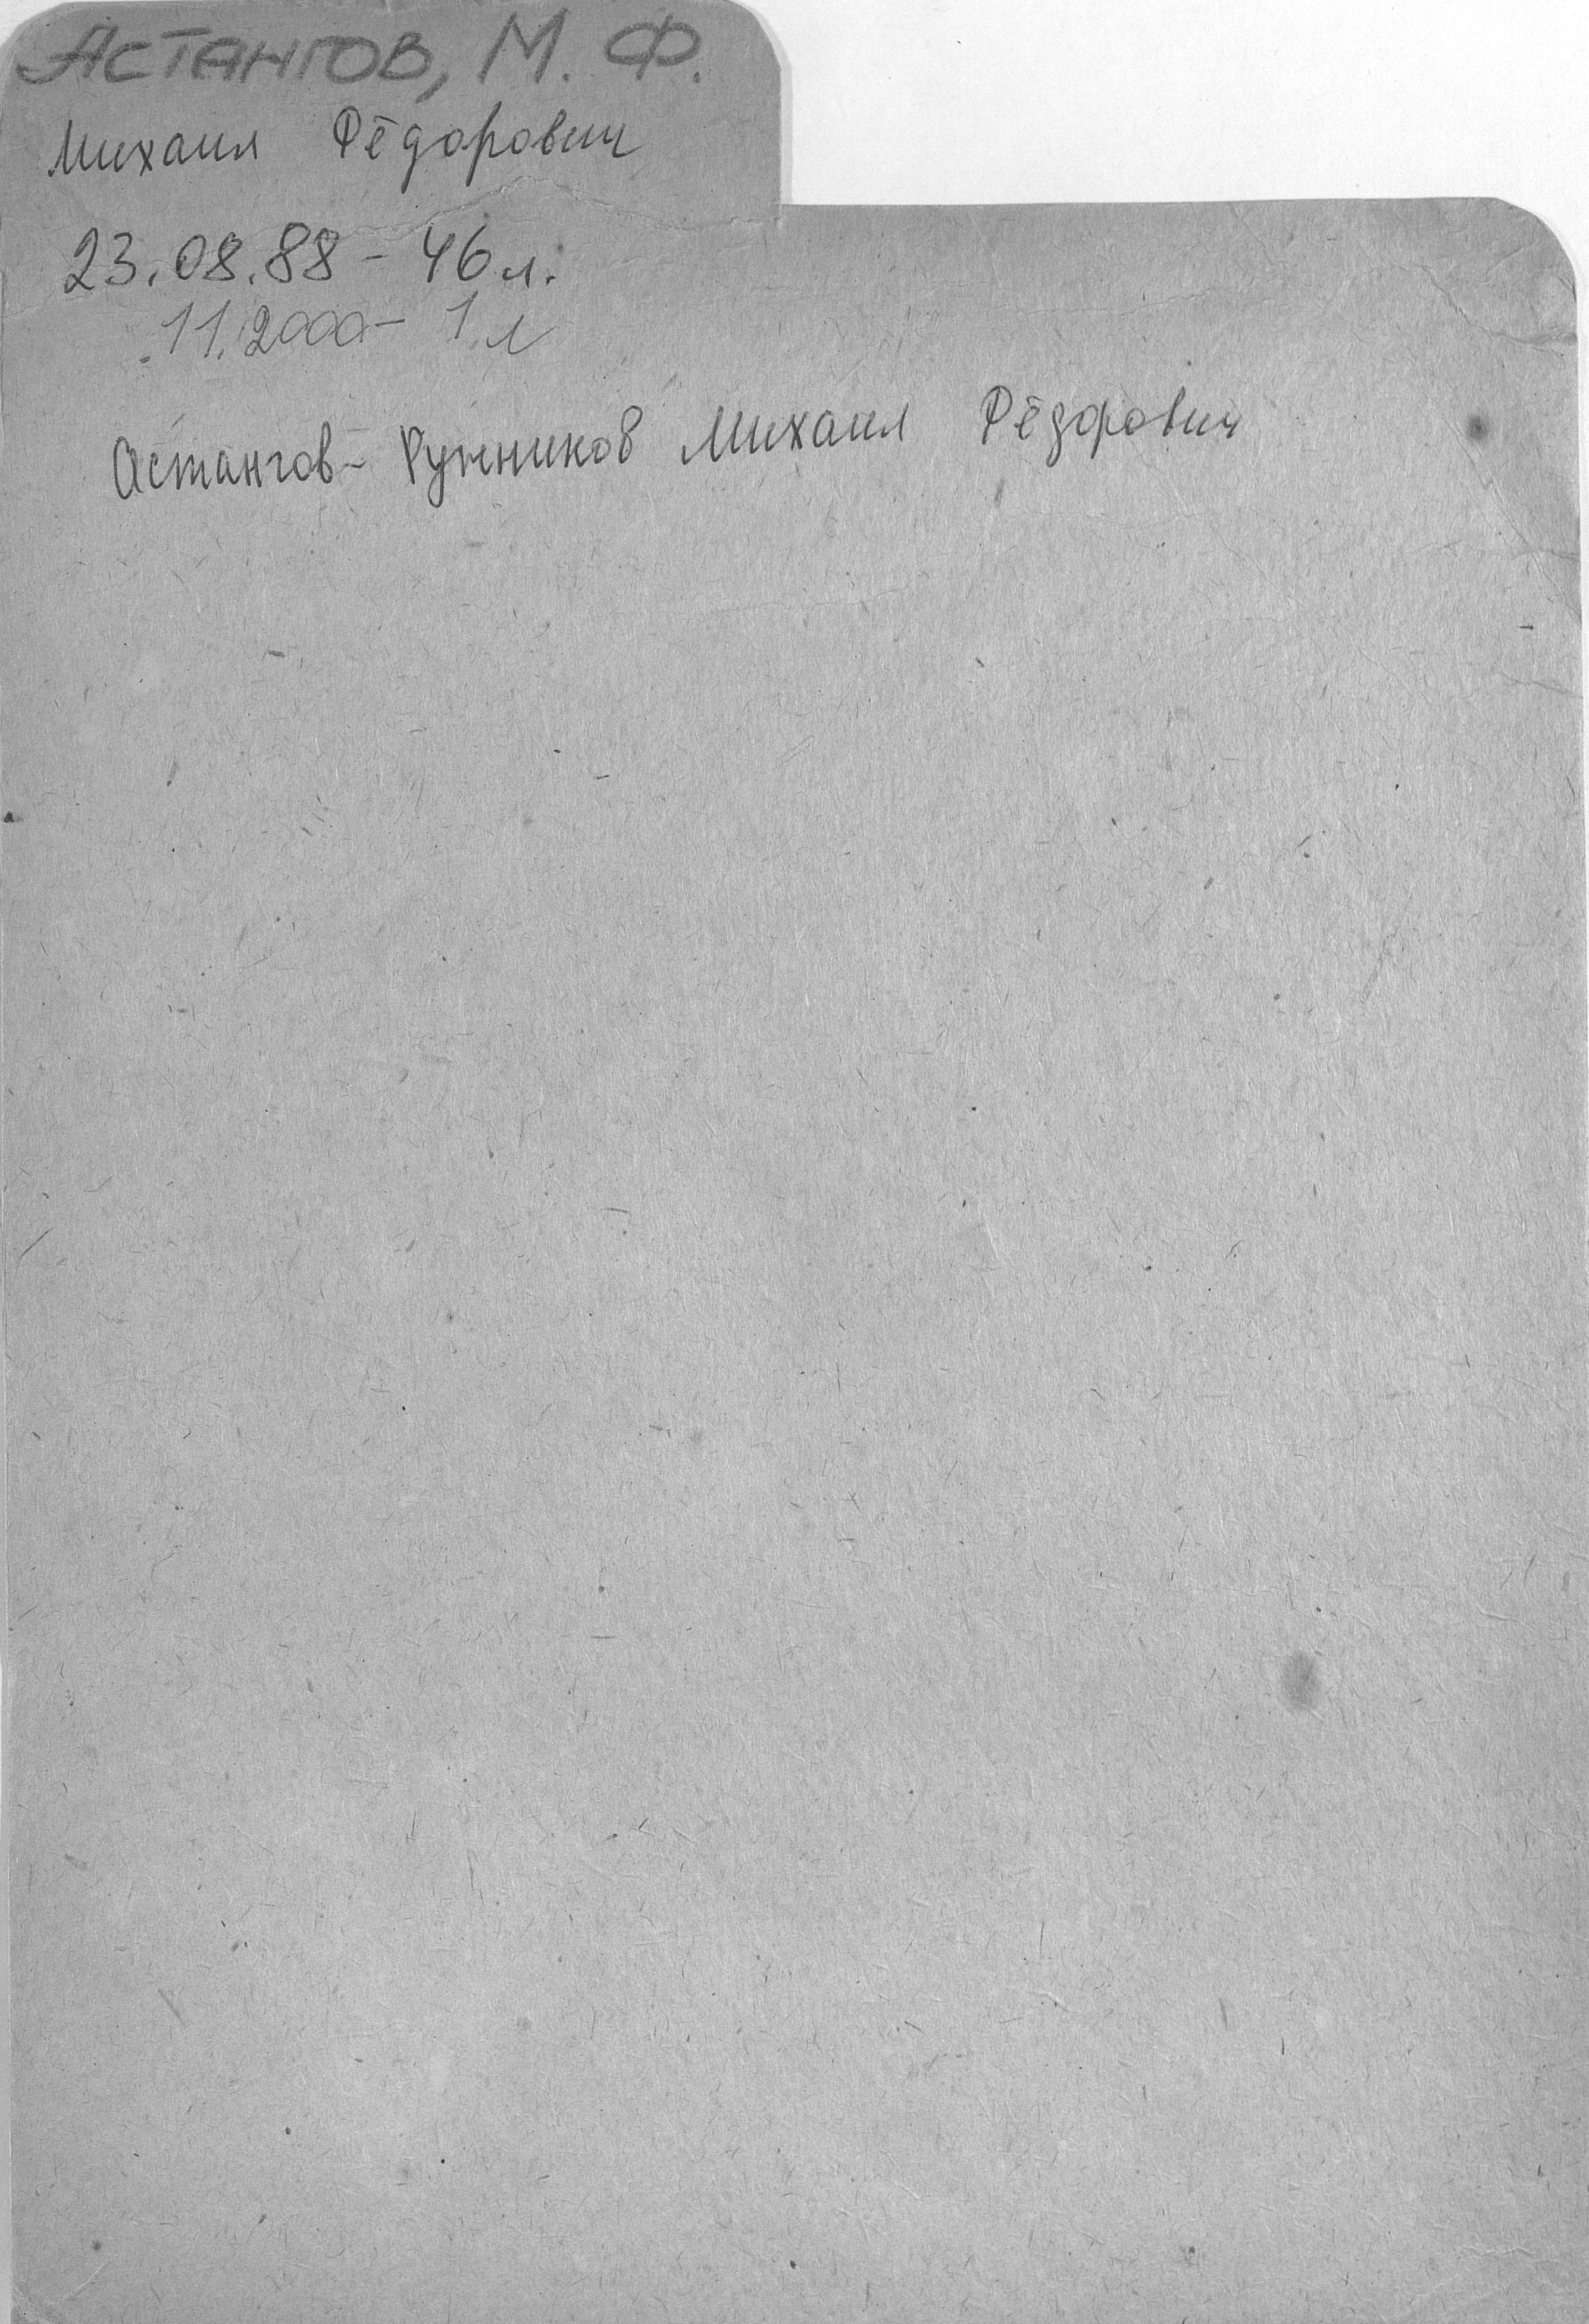 АСТАНГОВ, М. Ф.
Михаил Фёдорович
23.08.88 - 46 л.
.11.2000 - 1 л
Астангов - Ружников Михаил Фёдорович